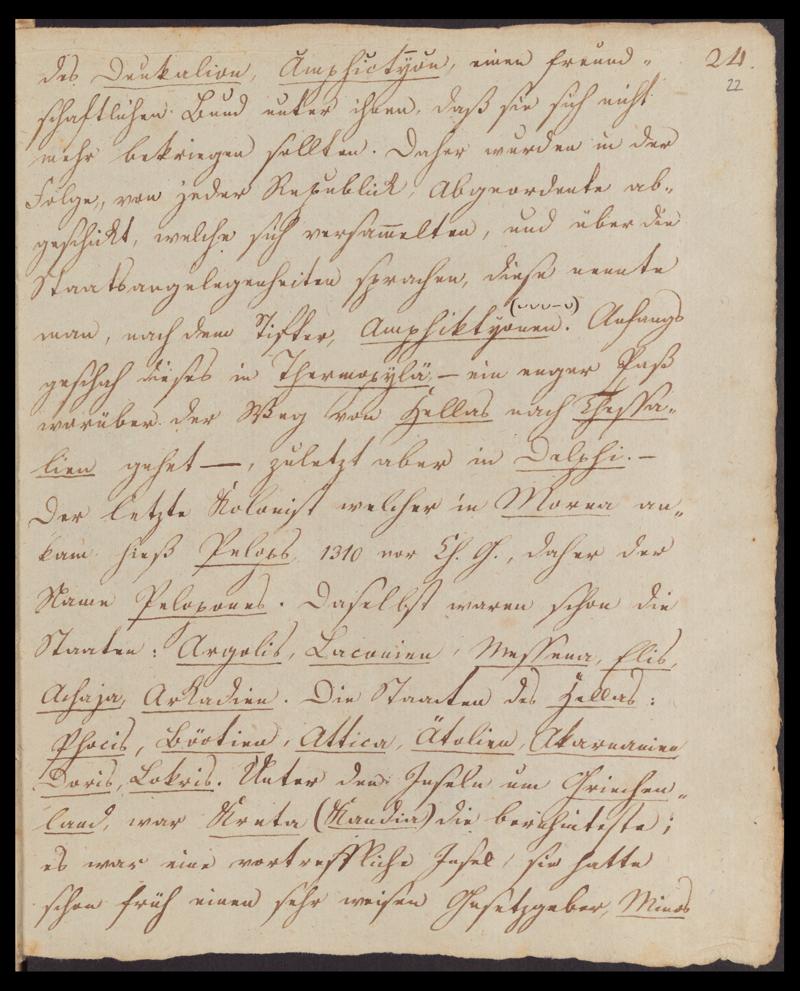 24.
22
des Deukalion, Amphictÿon, einen freund-
schaftlichen Bund unter ihnen, daß sie sich nicht
mehr bekriegen sollten. Daher wurden in der
Folge, von jeder Republick, Abgeordente ab-
geschickt, welche sich versam̅elten, und über die
Staatsangelegenheiten sprachen, diese nennte
man, nach dem Stifter, Amphiktyonen. (⏑⏑⏑–⏑) Anfangs
geschah dieses in Thermopylä – ein enger Paß
worüber der Weg von Hellas nach Thessa-
lien gehet –, zuletzt aber in Delphi. –
Der letzte Kolonist welcher in Morea an-
kam hieß Pelops, 1310 vor Ch. G., daher der
Name Pelopones. Daselbst waren schon die
Staaten: Argolis, Laconien, Messena, Elis,
Achaja, Arkadien. Die Staaten des Hellas:
Phocis, Böotien, Attica, Ätolien, Akarnanien
Doris, Lokris. Unter den Inseln um Griechen-
land, war Kreta (Kandia) die berühmteste;
es war eine vortreffliche Insel, sie hatte
schon früh einen sehr weisen Gesetzgeber, Minos